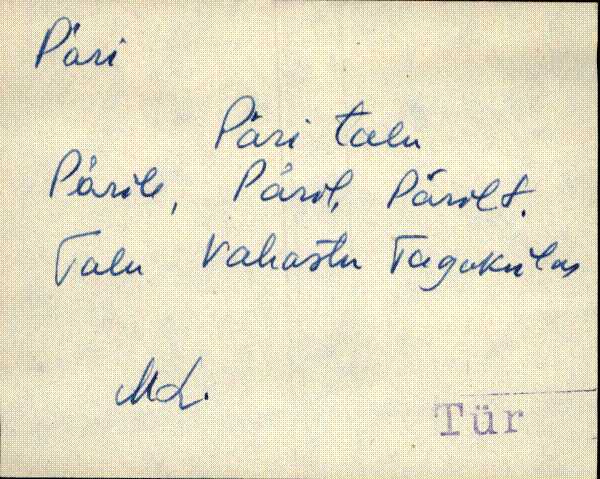 Päri
Päri talu
Pärile, Päril, Pärilt.
Talu Vahastu Tagakülas
M L.
Tür